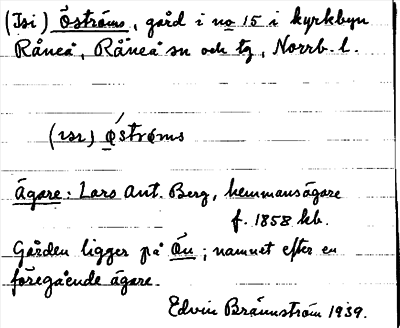 (Isi) Öströms, gård i no 15 i kyrkbyn
Råneå, Råneå sn och tg, Norrb. l.
(ısı) ǿströms
Ägare: Lars Ant. Berg, hemmansägare
f. 1858 hb.
Gården ligger på Ön; namnet efter en
föregående ägare.
Edvin Brännström 1939.